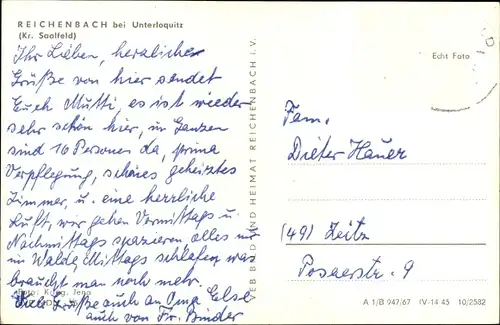 REICHENBACH bei Unterloquitz
(Kr. Saalfeld)
Ihr Lieben, herzliche
Grüße von hier sendet
Euch Mutti, es ist wieder
sehr schön hier, im Ganzen
sind 16 Personen da, prima
Verpflegung, schönes geheiztes
Zimmer, u. eine herrliche
Luft, wir gehen Vormittags u.
Nachmittags spazieren alles nur
im Walde, Mittags schlafen, was
braucht man noch mehr.
Viele Grüße auch an Oma Else
auch von Fr. Binder
Foto: König, Jena
VEB BILD UND HEIMAT REICHENBACH I. V.
Echt Foto
Fam.
Dieter Hauer
(49) Zeitz
Posaerstr. 9
A 1/B 947/67 IV-14-45 10/2582